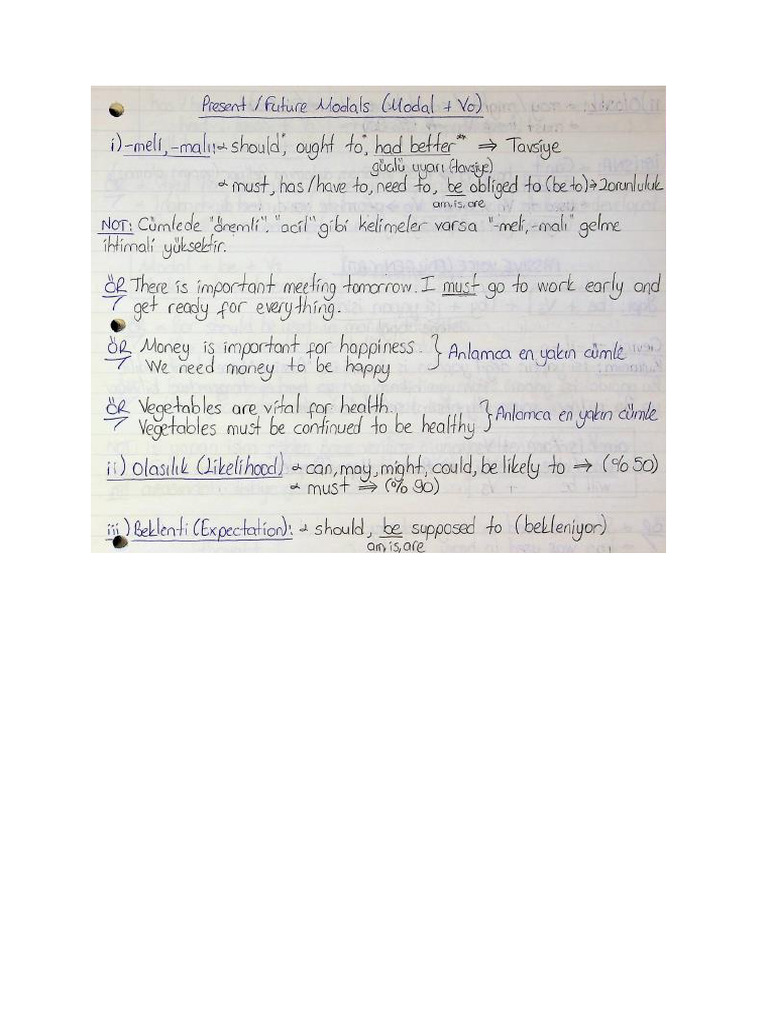 Present / Future Modals (Modal + Vo)
i) -meli, -malı: ∝ should*, ought to*, had better** ⇒ Tavsiye
güçlü uyarı (tavsiye)
∝ must, has/have to, need to, be obliged to (be to) → Zorunluluk
am, is, are
NOT: Cümlede "önemli", "acil" gibi kelimeler varsa "-meli, -malı" gelme
ihtimali yüksektir.
ÖR/ There is important meeting tomorrow. I must go to work early and
get ready for everything.
ÖR/ Money is important for happiness. } Anlamca en yakın cümle
We need money to be happy
ÖR/ Vegetables are vital for health. } Anlamca en yakın cümle
Vegetables must be continued to be healthy
ii) Olasılık (Likelihood) ∝ can, may, might, could, be likely to ⇒ (%50)
∝ must ⇒ (%90)
iii) Beklenti (Expectation): ∝ should, be supposed to (bekleniyor)
am, is, are